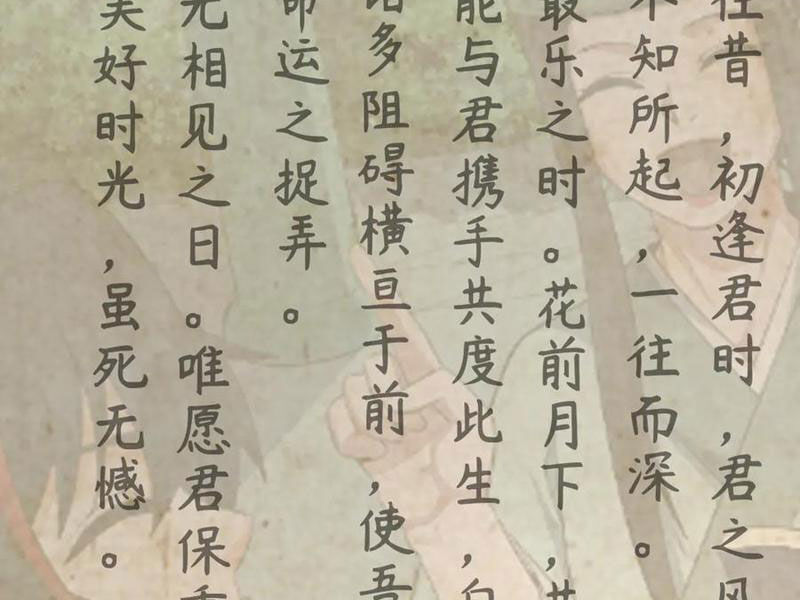 往昔，初逢君时，君之风
不知所起，一往而深。
最乐之时。花前月下，共
能与君携手共度此生，白
诸多阻碍横亘于前，使吾
命运之捉弄。
无相见之日。唯愿君保重
美好时光，虽死无憾。